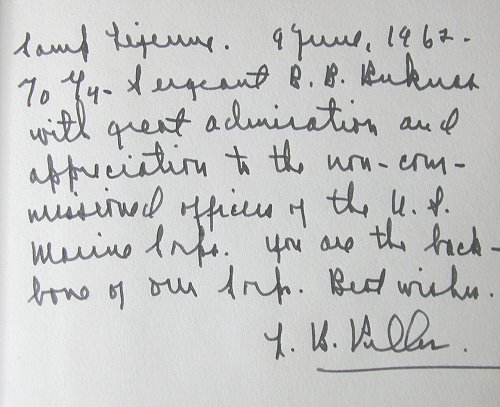 Camp Lejeune. 9 June, 1962.
To Gy- Sergeant B. B.
with great admiration and
appreciation to the non-com-
missioned officers of the U.S.
Marine Corps. You are the back-
bone of our Corps. Best wishes.
L. B. Puller.